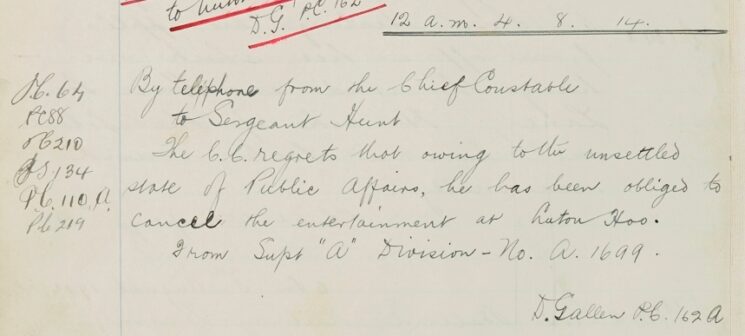 to Luton
D.G. P.C. 162
12 a.m. 4. 8. 14.
P.C. 64
PC 88
PC 210
P.S. 134
P.C. 110. A.
P.C. 219
By telephone from the Chief Constable
to Sergeant Hunt
The C.C. regrets that owing to the unsettled
state of Public Affairs, he has been obliged to
cancel the entertainment at Luton Hoo.
From Supt "A" Division – No. A. 1699.
D. Gallen P.C. 162 A